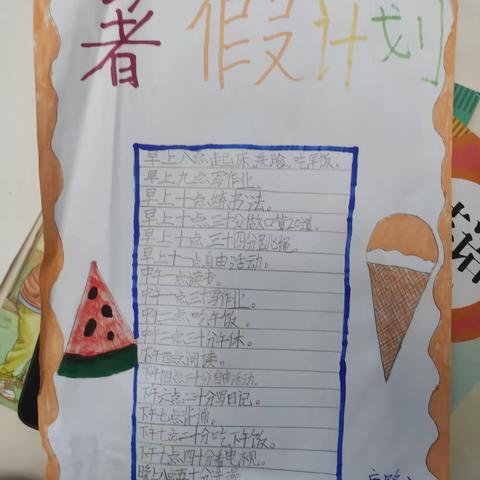 暑假计划
早上八点起床,洗脸,吃早饭。
早上九点写作业。
早上十点练书法。
早上十点二十分做口算20道。
早上十点三十四分跳绳。
早上十一点自由活动。
中午一点读书。
中午一点三十写作业。
中午二点吃午饭。
中午二点三十分午休。
下午四点阅读。
下午四点三十分自由活动。
下午六点二十分写日记。
下午七点背诵。
下午七点二十分吃下午饭。
下午七点四十分看电视。